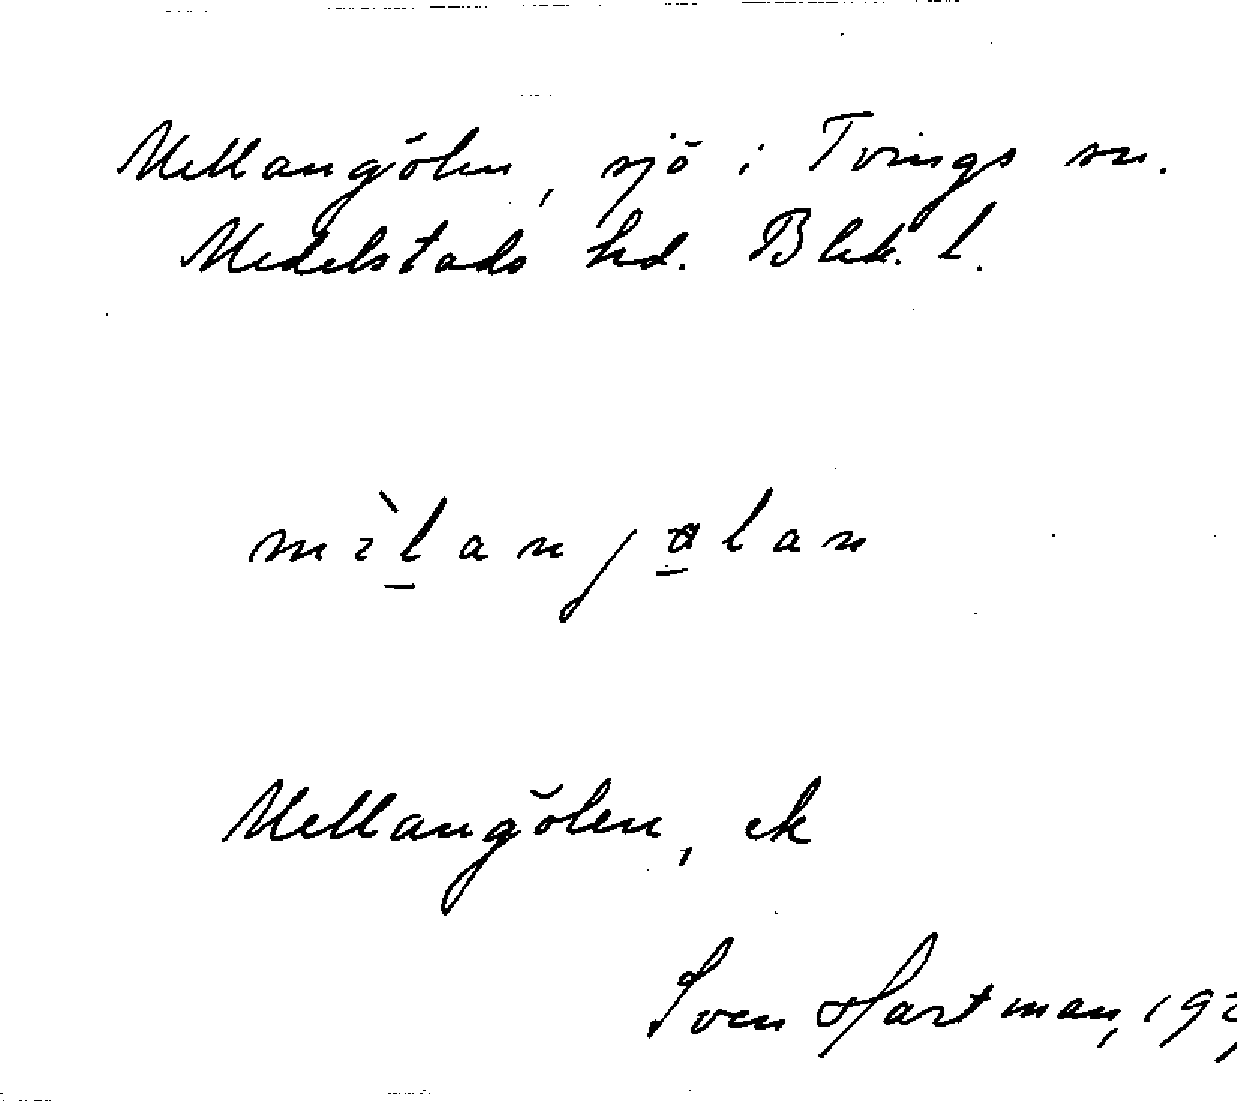 Mellangölen, sjö i Tvings sn.
Medelstads hd. Blek. l.
Mellangölen, ek
Sven Hartman, 19